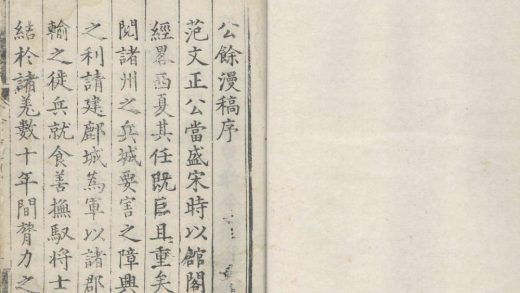 公餘漫稿序
范文正公當盛宋時以館閣
經畧西夏其任既巨且重矣
閱諸州之兵城要害之障興
之利請建鄜城為軍以諸郡
輸之徒兵就食善撫馭將士
結於諸羌數十年間膂力之